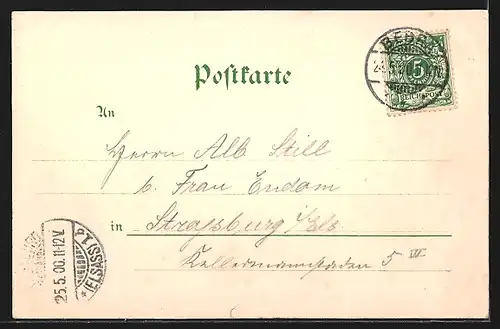 Postkarte
An
Herrn Alb Still
b. Frau Endam
in Strassburg i/Els
Kellermannstaden 5 III
5
REICHSPOST
25.5.00.11-12V.
(ELSASS)